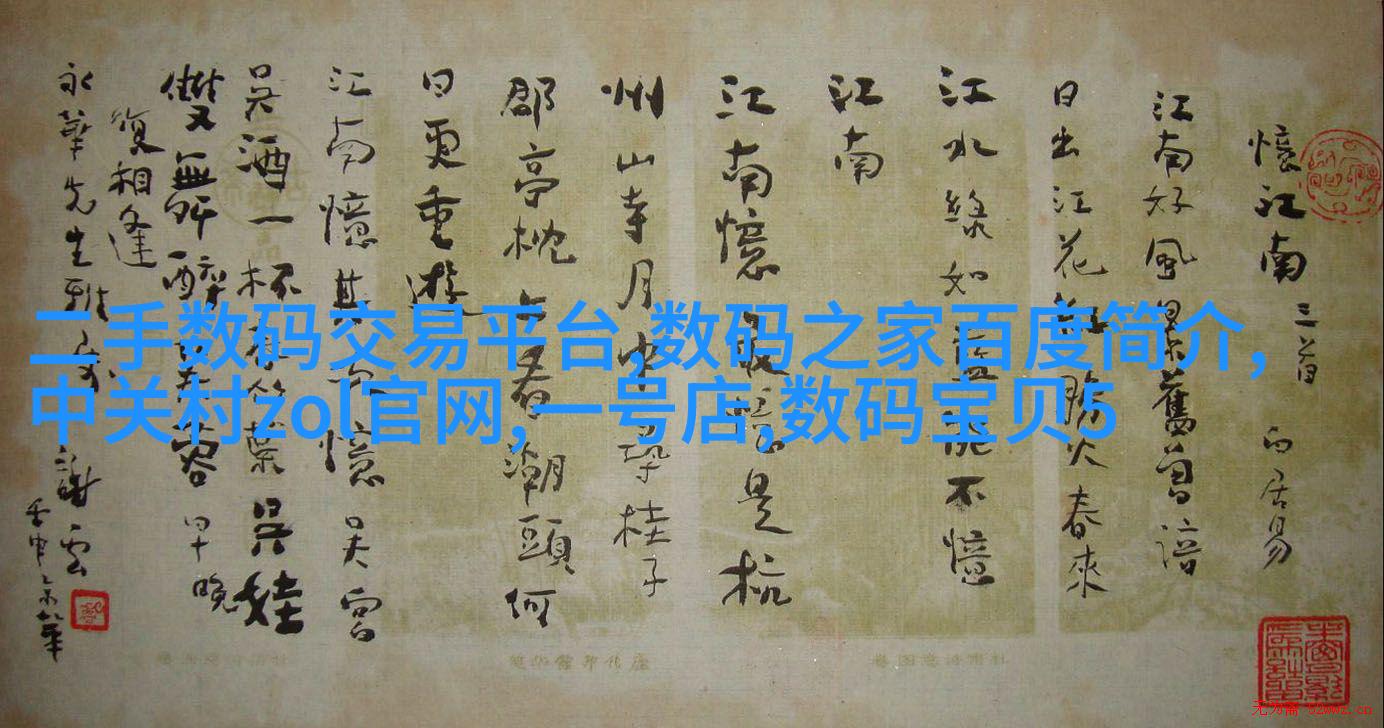 二手数码交易平台,数码之家百度简介,
中关村zol官网,一号店,数码宝贝5
憶江南 三首 白居易
江南好風景舊曾諳
日出江花紅勝火春來
江水綠如藍能不憶
江南
江南憶最憶是杭
州山寺月中尋桂子
郡亭枕上看潮頭何
日更重遊
江南憶其次憶吳宮
吳酒一杯春竹葉吳娃
雙舞醉芙蓉早晚
復相逢
永華先生雅 謝雲
壬申 京華